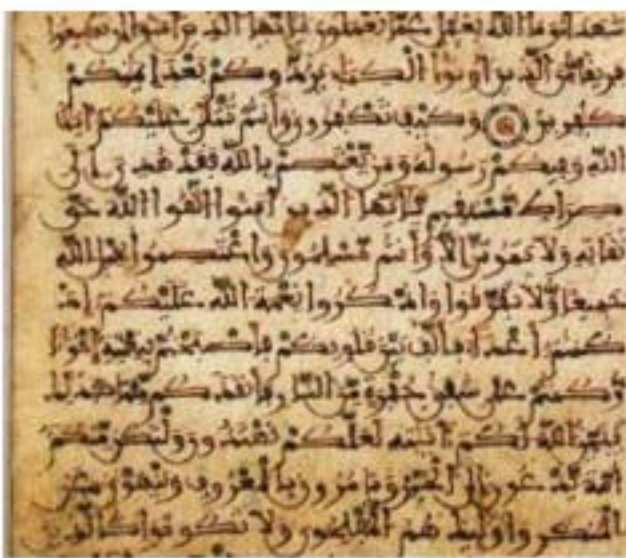 شهداء وما الله بغفل عما تعملون يأيها الذين ءامنوا إن تطيعوا
فريقا من الذين أوتوا الكتب يردوكم بعد إيمنكم
كفرين وكيف تكفرون وأنتم تتلى عليكم ءايت
الله وفيكم رسوله ومن يعتصم بالله فقد هدي إلى
صرط مستقيم يأيها الذين ءامنوا اتقوا الله حق
تقاته ولا تموتن إلا وأنتم مسلمون واعتصموا بحبل الله
جميعا ولا تفرقوا واذكروا نعمة الله عليكم إذ
كنتم أعداء فألف بين قلوبكم فأصبحتم بنعمته إخونا
وكنتم على شفا حفرة من النار فأنقذكم منها كذلك
يبين الله لكم ءايته لعلكم تهتدون ولتكن منكم
أمة يدعون إلى الخير ويأمرون بالمعروف وينهون عن
المنكر وأوليك هم المفلحون ولا تكونوا كالذين